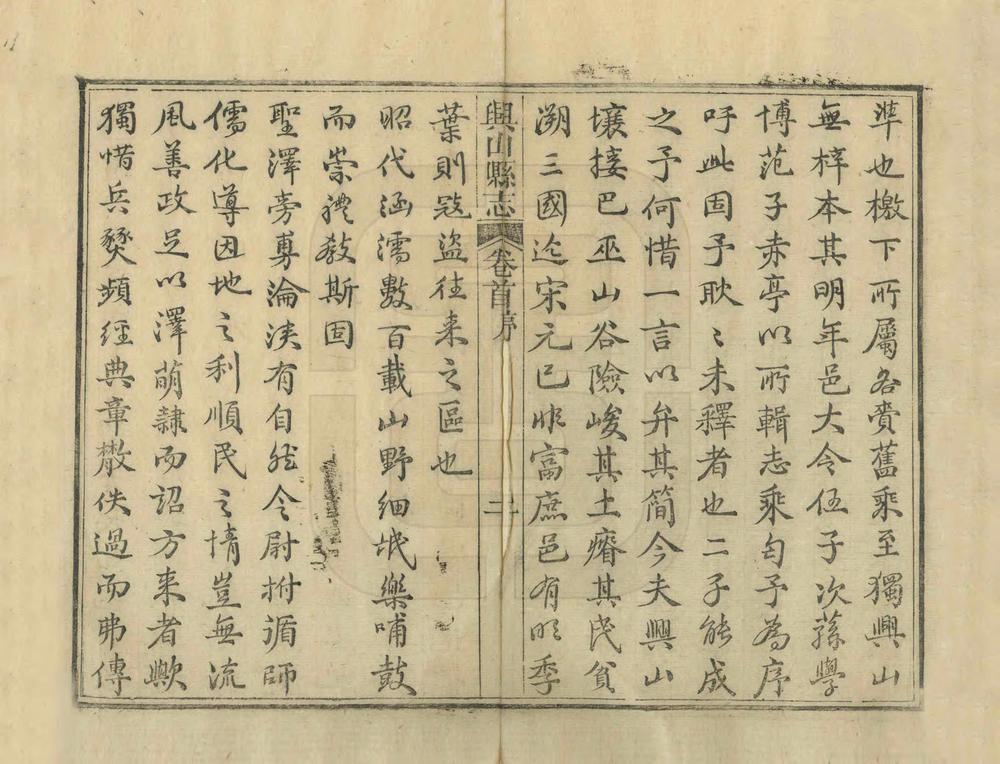 準也檄下所屬各賫舊乘至獨興山
無梓本其明年邑大令伍子次蓀學
博范子赤亭以所輯志乘匄予為序
吁此固予耿〻未釋者也二子能成
之予何惜一言以弁其簡今夫興山
壤接巴巫山谷險峻其土瘠其民貧
溯三國迄宋元已非富庶邑有明季
興山縣志 卷首序 二
葉則寇盜往来之區也
昭代涵濡數百載山野細氓樂哺鼓
而崇禮教斯固
聖澤旁尃淪浹有自然令尉拊循師
儒化導因地之利順民之情豈無流
風善政足以澤萌隷而詔方来者歟
獨惜兵燹頻經典章散佚過而弗傳